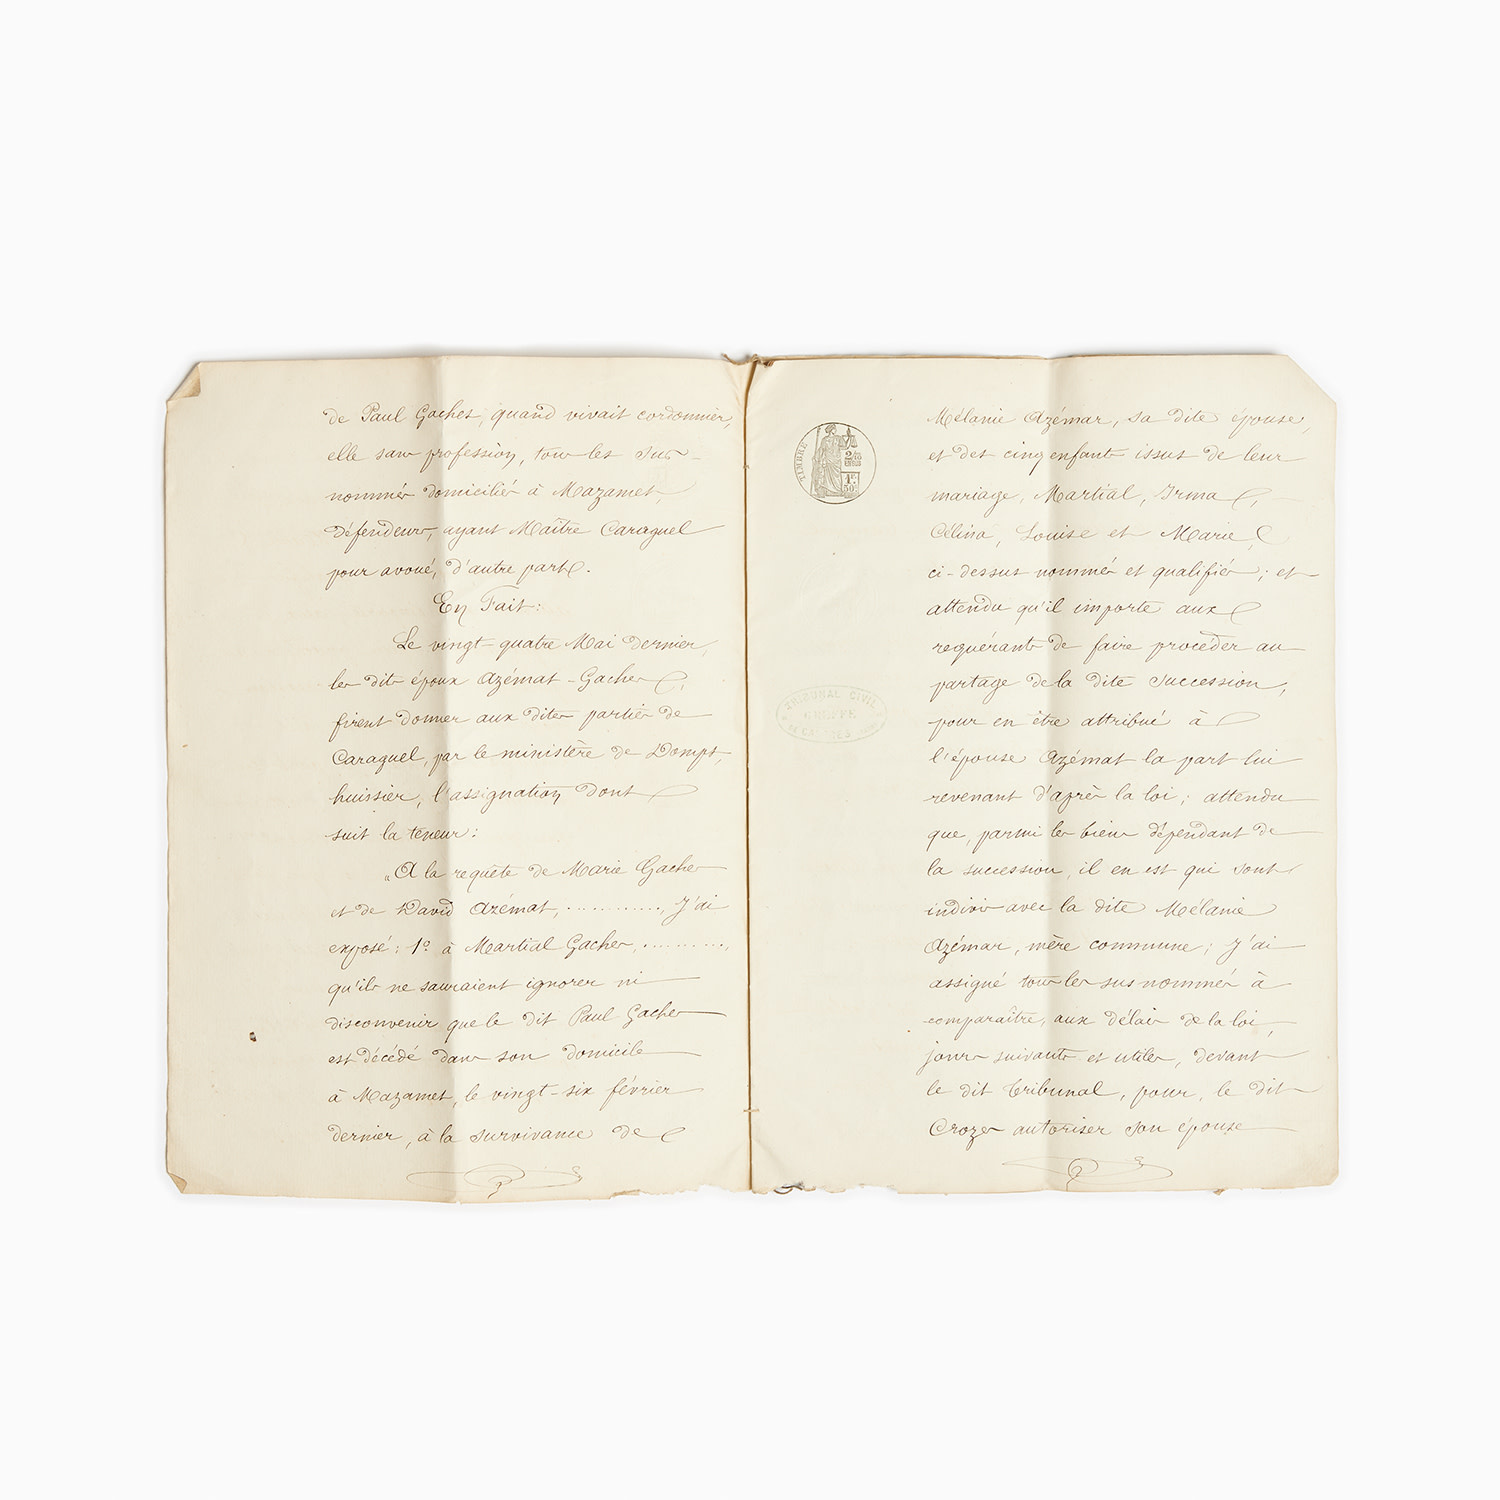 de Paul Gaches, quand vivait cordonnier,
elle sans profession, tous les sus-
nommés domiciliés à Mazamet,
défendeurs, ayant Maître Caraguel
pour avoué, d'autre part.
En Fait:
Le vingt-quatre Mai dernier,
les dits époux Azémat-Gaches,
firent donner aux dites parties de
Caraguel, par le ministère de Domps,
huissier, l'assignation dont
suit la teneur:
"A la requête de Marie Gaches
et de David Azémat, .........., J'ai
exposé: 1º à Martial Gaches, ..........,
qu'ils ne sauraient ignorer ni
disconvenir que le dit Paul Gaches
est décédé dans son domicile
à Mazamet, le vingt-six février
dernier, à la survivance de
TIMBRE
Mélanie Azémar, sa dite épouse,
et des cinq enfants issus de leur
mariage, Martial, Irma,
Célina, Louise et Marie,
ci-dessus nommés et qualifiés; et
attendu qu'il importe aux
requérants de faire procéder au
partage de la dite succession,
pour en être attribué à
l'épouse Azémat la part lui
revenant d'après la loi; attendu
que, parmi les biens dépendant de
la succession, il en est qui sont
indivis avec la dite Mélanie
Azémar, mère commune; J'ai
assigné tous les susnommés à
comparaître, aux délais de la loi,
jours suivants et utiles, devant
le dit Tribunal, pour, le dit
Crozes autoriser son épouse
TRIBUNAL CIVIL
GREFFE
DE CASTRES